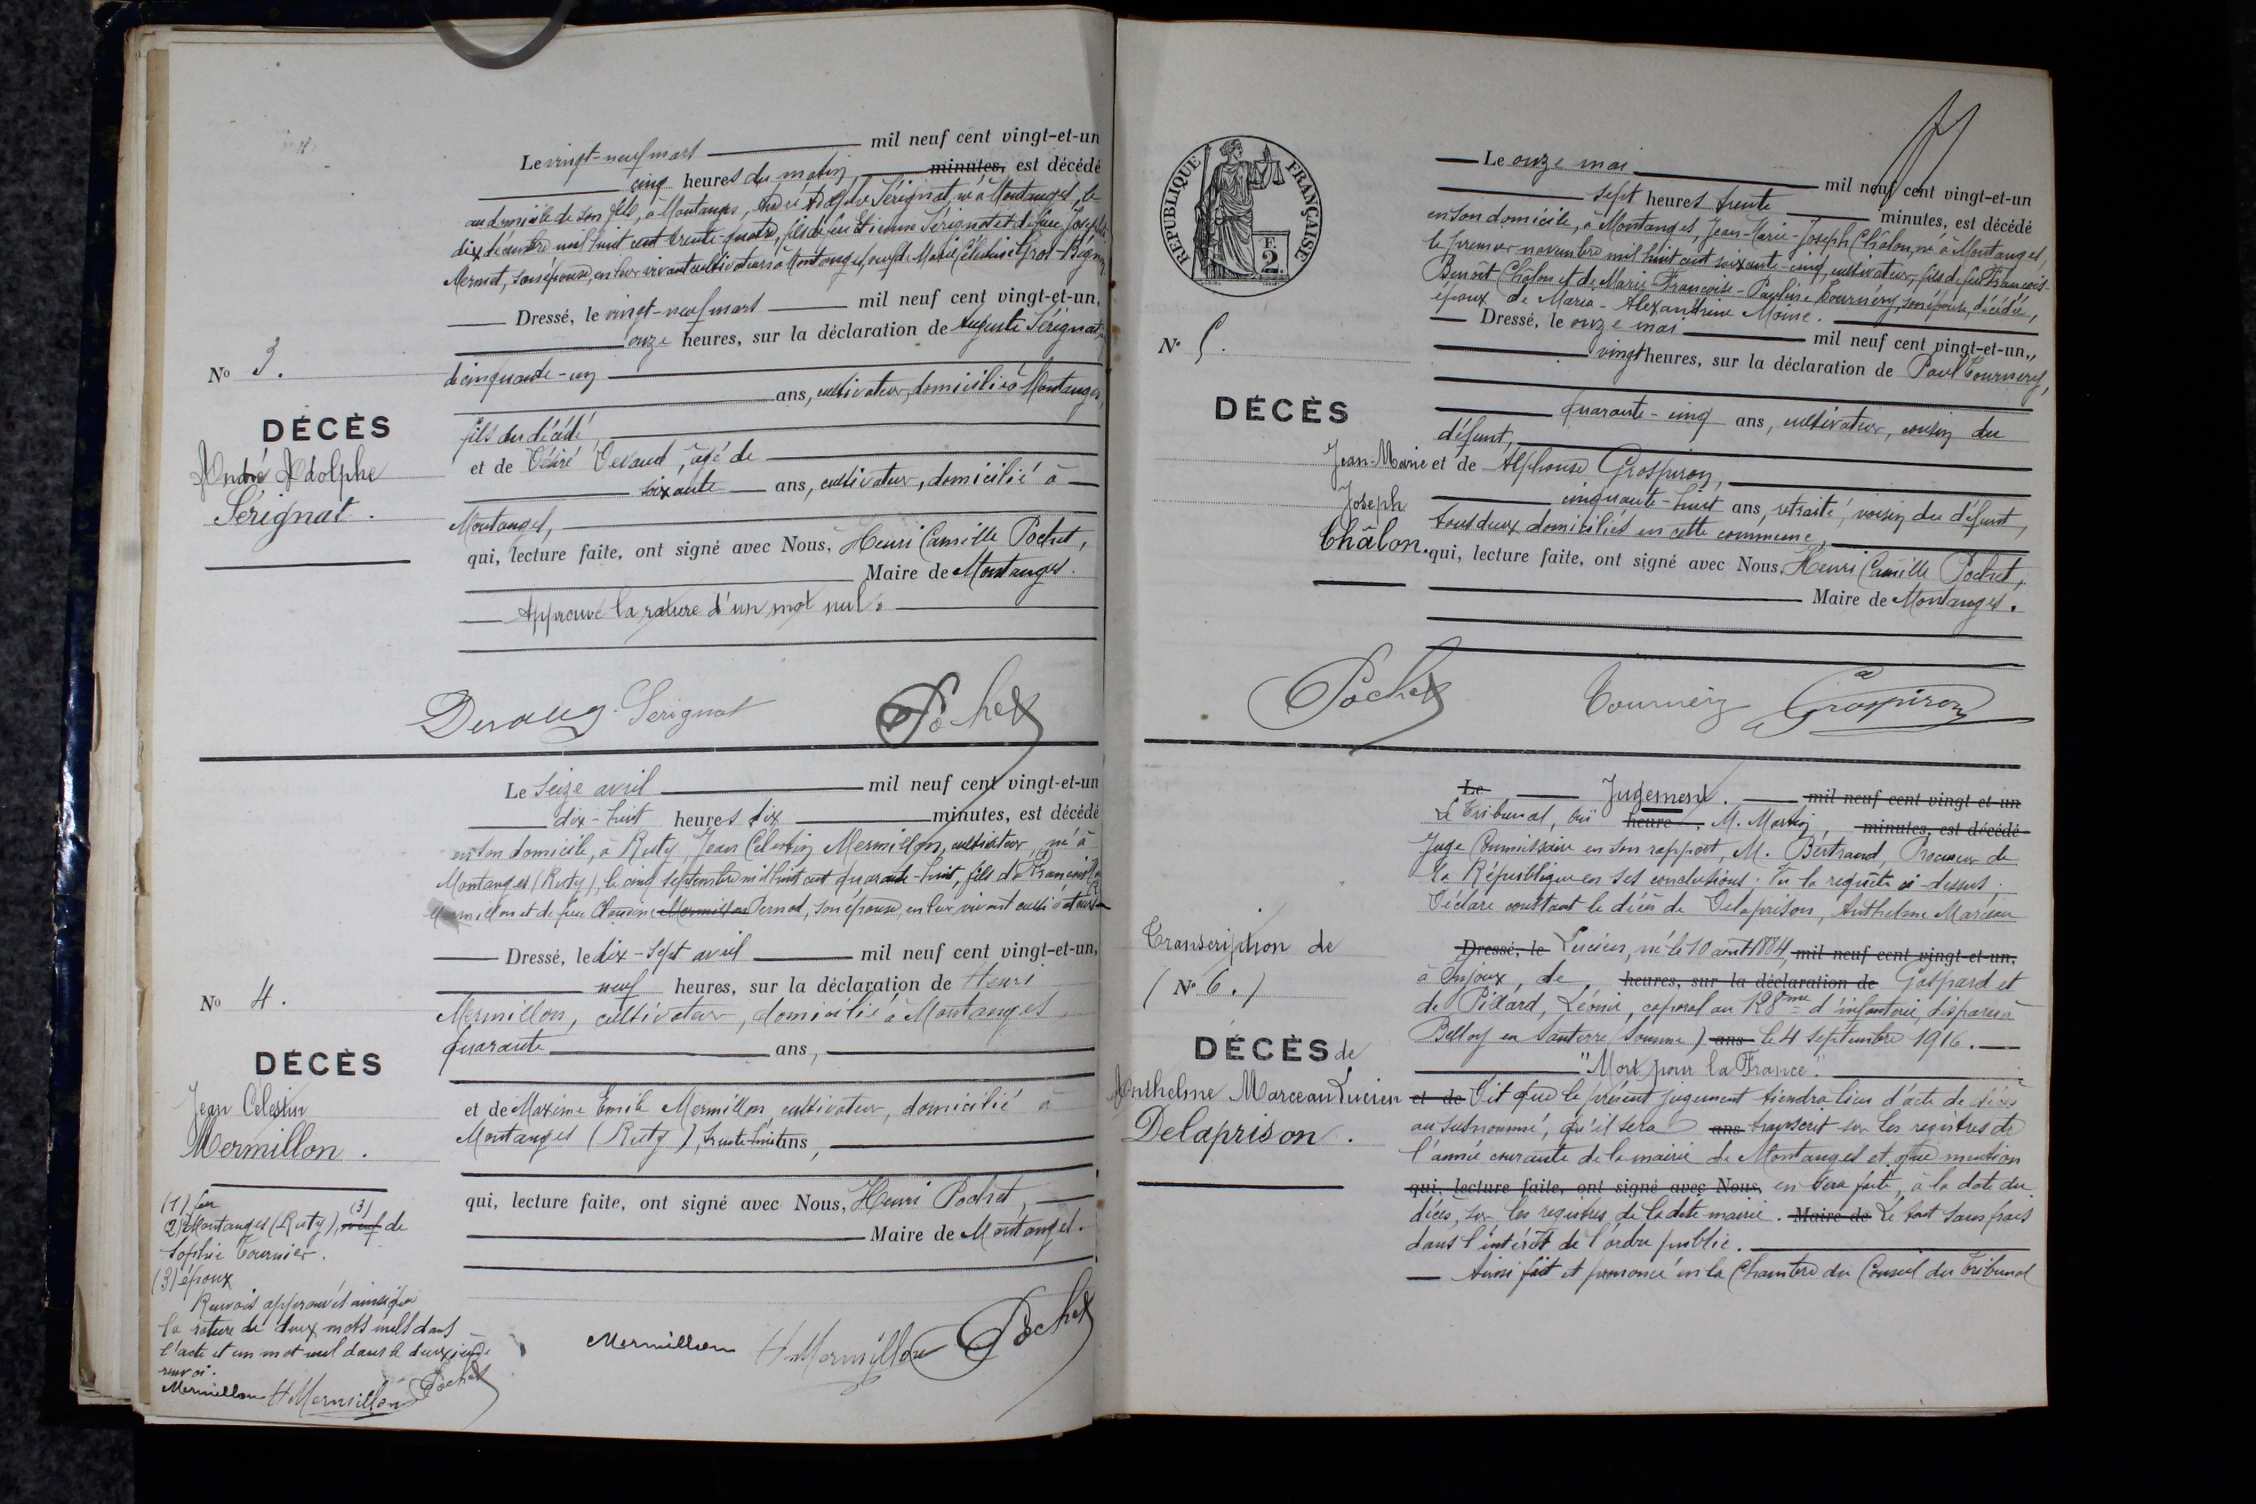 Le vingt-neuf mars mil neuf cent vingt-et-un
cinq heures du matin, minutes, est décédé
au domicile de son fils, à Montanges, André Adolphe Sérignat, né à Montanges, le
dix décembre mil huit cent trente-quatre, fils de feu Etienne Sérignat et de feue Josephte
Mermet, son épouse, en leur vivant cultivateurs à Montanges, veuf de Marie Célestine Gros-
Dressé, le vingt-neuf mars mil neuf cent vingt-et-un,
onze heures, sur la déclaration de Auguste Sérignat,
No 3.
de cinquante-un
ans, cultivateur, domicilié à Montanges,
DÉCÈS
fils du décédé,
André Adolphe
et de Désiré Devaud, âgé de
soixante ans, cultivateur, domicilié à
Sérignat.
Montanges,
qui, lecture faite, ont signé avec Nous, Henri Camille Pochet,
Maire de Montanges.
Approuvé la rature d'un mot nul.
Sérignat Pochet
Le seize avril mil neuf cent vingt-et-un
dix-huit heures dix minutes, est décédé
en son domicile, à Ruty, Jean Célestin Mermillon, cultivateur, né à
Montanges (Ruty), le cinq septembre mil huit cent quarante-huit, fils de (1) François
Mermillon et de feue Mermillon Vernod, son épouse, en leur vivant cultivateurs
Dressé, le dix-sept avril mil neuf cent vingt-et-un,
neuf heures, sur la déclaration de Henri
No 4.
Mermillon, cultivateur, domicilié à Montanges
quarante ans,
DÉCÈS
Jean Célestin
et de Maxime Emile Mermillon, cultivateur, domicilié à
Montanges (Ruty), trente-huit ans,
Mermillon.
qui, lecture faite, ont signé avec Nous, Henri Pochet,
Maire de Montanges.
(1) feu
(2) à Montanges (Ruty), (3) veuf de
Sophie Tournier.
(3) époux
Renvois approuvés ainsi que
la rature de deux mots nuls dans
l'acte et un mot nul dans le deuxième
renvoi.
Mermillon H Mermillon Pochet
Mermillon H Mermillon Pochet
REPUBLIQUE FRANÇAISE
F.
2.
Le onze mai mil neuf cent vingt-et-un
sept heures trente minutes, est décédé
en son domicile, à Montanges, Jean-Marie-Joseph Châlon, né à Montanges,
le premier novembre mil huit cent soixante-cinq, cultivateur, fils de feu François-
Benoît Châlon et de Marie-Françoise-Pauline Tournéry, son épouse, décédée,
époux de Maria-Alexandrine Moine.
Dressé, le onze mai mil neuf cent vingt-et-un,
No 5.
vingt heures, sur la déclaration de Paul Tournery,
DÉCÈS
quarante-cinq ans, cultivateur, cousin du
défunt,
Jean-Marie
et de Alphonse Grospiron,
Joseph
cinquante-huit ans, retraité, voisin du défunt,
tous deux domiciliés en cette commune,
Châlon.
qui, lecture faite, ont signé avec Nous, Henri Camille Pochet,
Maire de Montanges.
Pochet Tournéry Grospiron
Le Jugement. mil neuf cent vingt et un
Le Tribunal, ouï heure M. Martin, minutes, est décédé
Juge Commissaire en son rapport, M. Bertrand, Procureur de
la République en ses conclusions; Vu la requête ci-dessus;
Déclare constant le décès de Delaprison, Anthelme Marceau
Transcription de
Dressé, le Lucien, né le 10 août 1884 mil neuf cent vingt-et-un,
à Injoux, de heures, sur la déclaration de Gaspard et
(No 6.)
de Pillard, Léonie, caporal au eme d'infanterie, disparu à
Belloy en Santerre (Somme) ans le 4 septembre 1916.
DÉCÈS de
"Mort pour la France".
Anthelme Marceau Lucien
et de Dit que le présent jugement tiendra lieu d'acte de décès
Delaprison.
au susnommé, qu'il sera ans transcrit sur les registres de
l'année courante de la mairie de Montanges et que mention
qui, lecture faite, ont signé avec Nous, en sera faite, à la date du
décès, sur les registres de la dite mairie. Maire de Le tout sans frais
dans l'intérêt de l'ordre public.
Ainsi fait et prononcé en la Chambre du Conseil du Tribunal